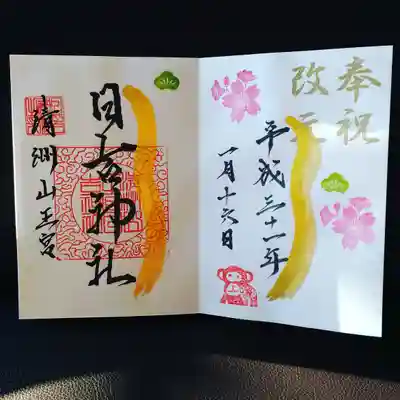 奉祝
改元
平成三十一年
一月十六日
日吉神社
清洲山王宮